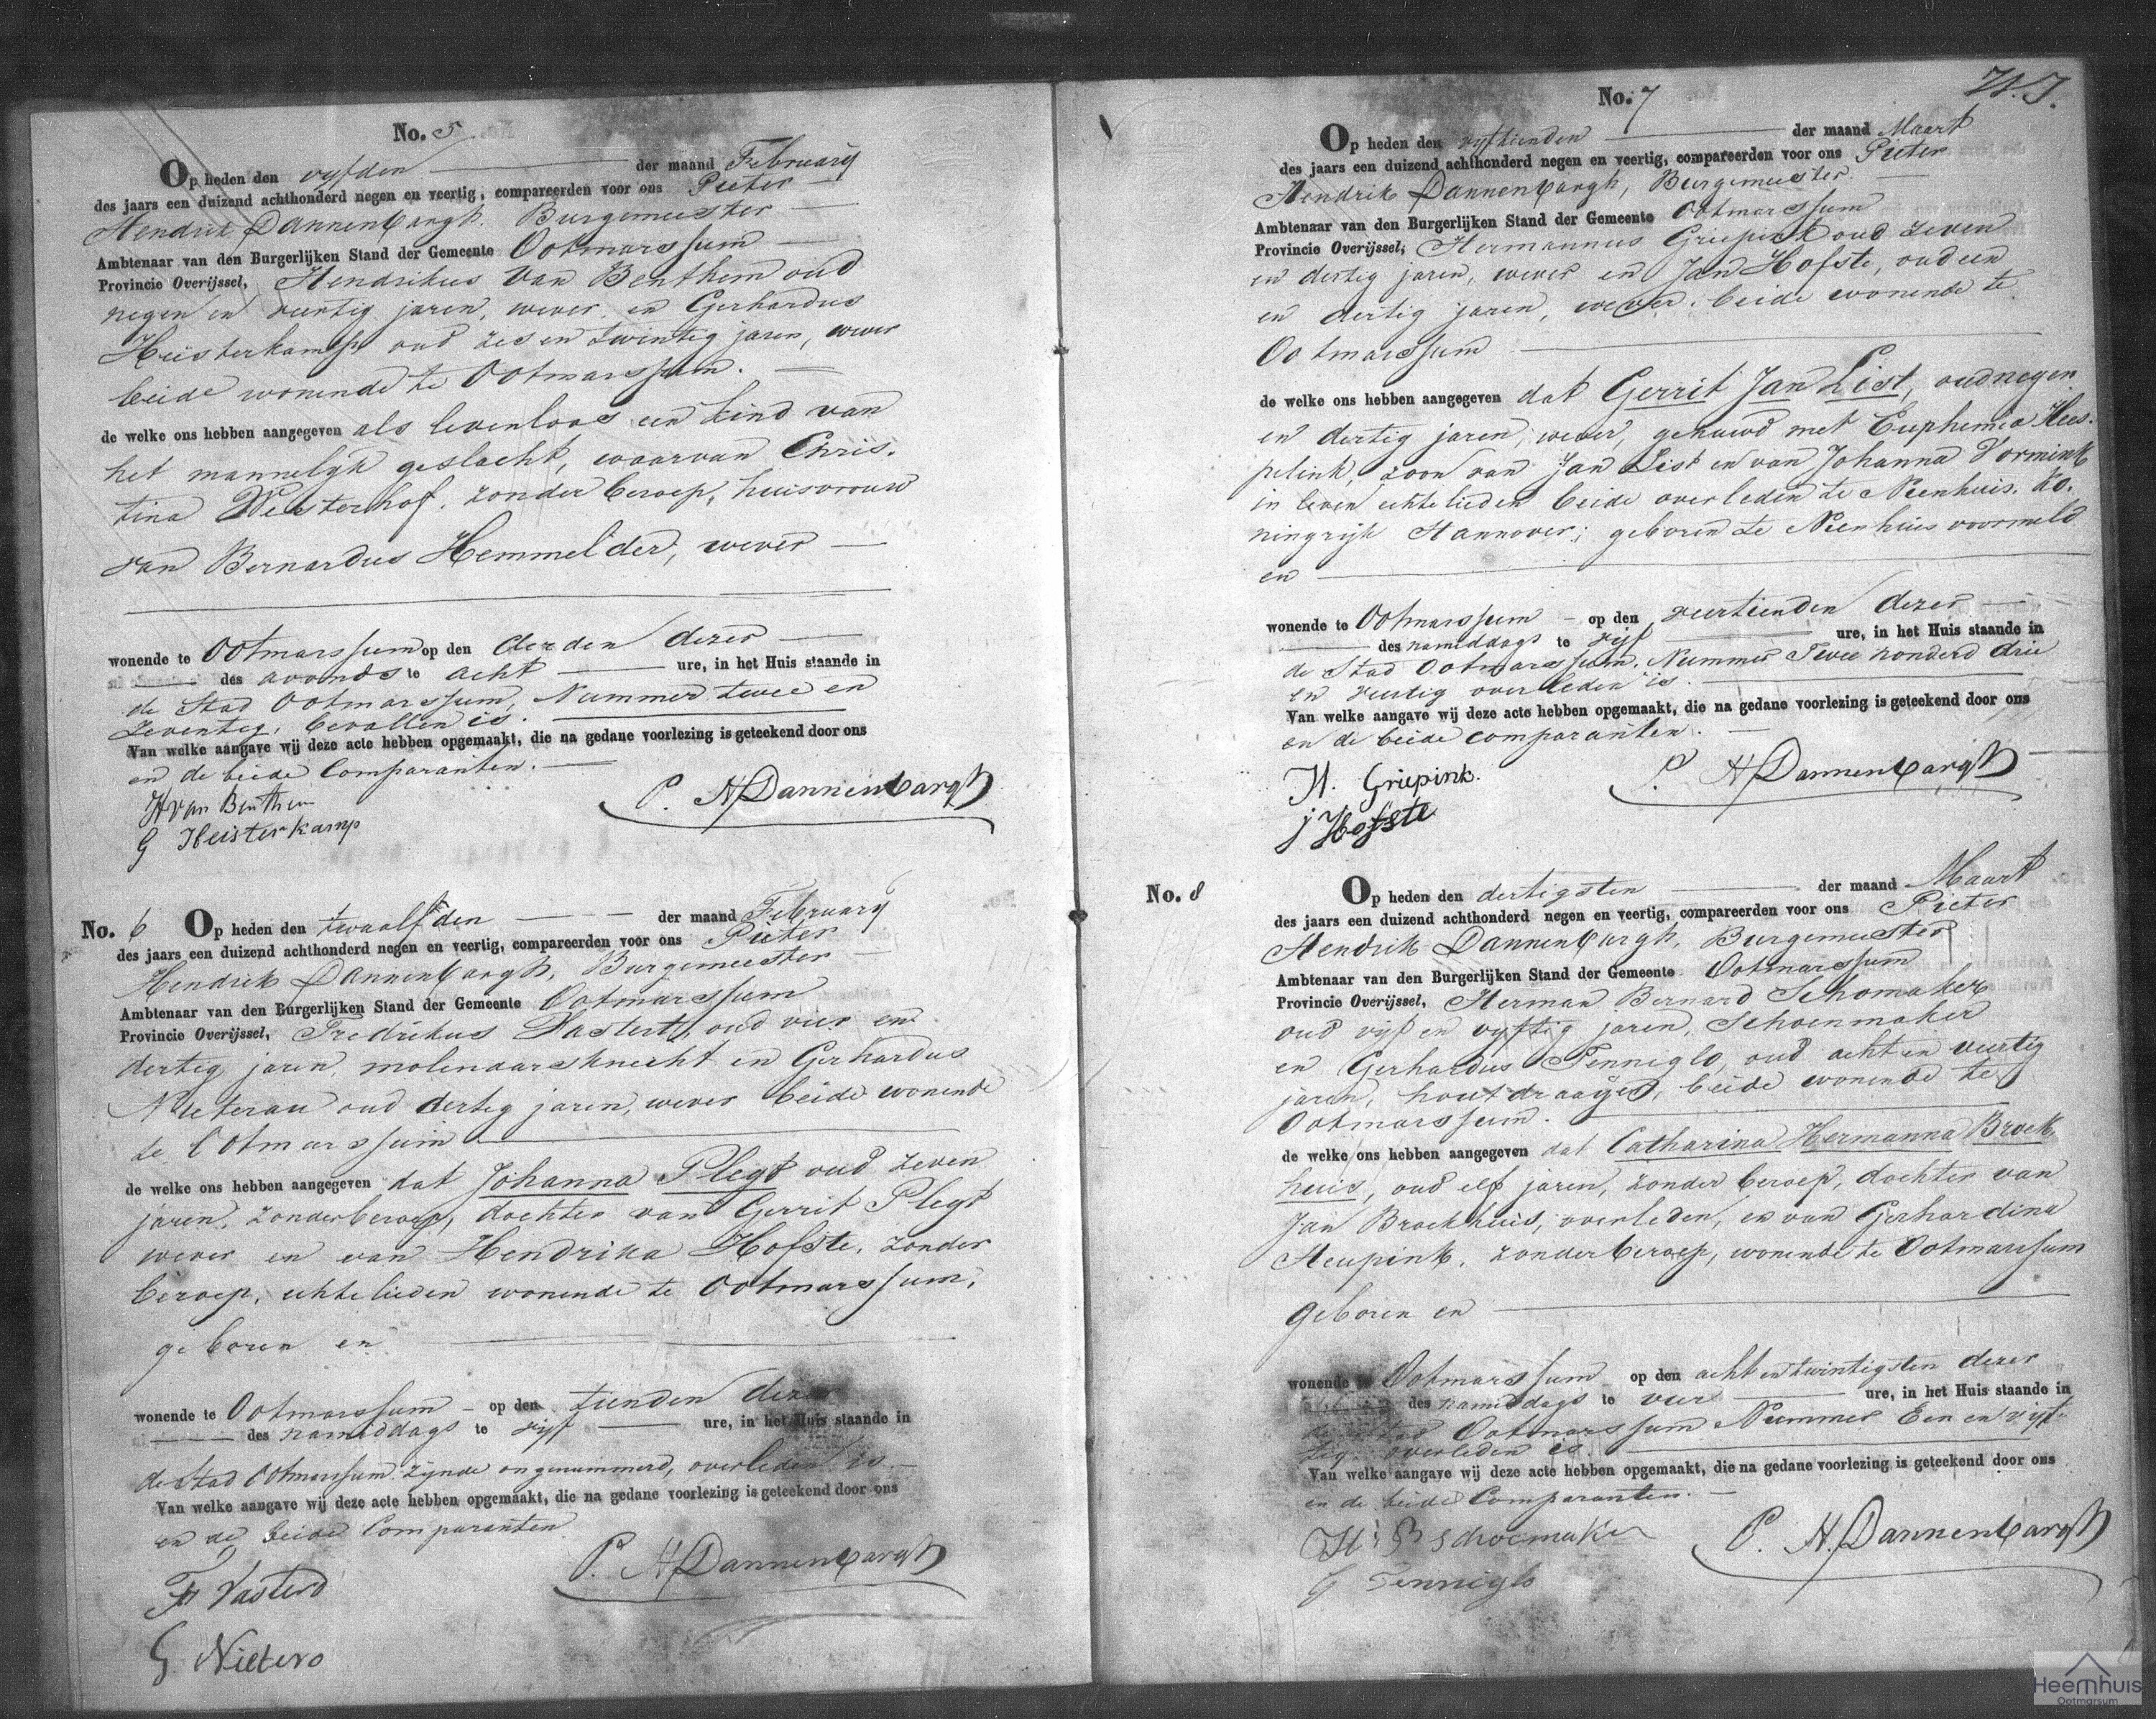 No. 5
Op heden den vyfden der maand February
des jaars een duizend achthonderd negen en veertig, compareerden voor ons Pieter
Hendrik Dannenbargh, Burgemeester
Ambtenaar van den Burgerlijken Stand der Gemeente Ootmarssum
Provincie Overijssel, Hendrikus van Benthem oud
negen en veertig jaren, wever en Gerhardus
Heisterkamp oud zes en twintig jaren, wever
beide wonende te Ootmarssum.
de welke ons hebben aangegeven als levenloos een kind van
het mannelyk geslacht, waarvan Chris-
tina Westerhof, zonder beroep, huisvrouw
van Bernardus Hemmelder, wever
wonende te Ootmarssum op den derden dezer
des avonds te acht ure, in het Huis staande in
de Stad Ootmarssum, Nummer twee en
zeventig, bevallen is.
Van welke aangave wij deze acte hebben opgemaakt, die na gedane voorlezing is geteekend door ons
en de beide Comparanten.
H van Benthem
P. H Dannenbargh
G Heisterkamp
No. 6 Op heden den twaalfden der maand February
des jaars een duizend achthonderd negen en veertig, compareerden voor ons Pieter
Hendrik Dannenbargh, Burgemeester
Ambtenaar van den Burgerlijken Stand der Gemeente Ootmarssum
Provincie Overijssel, Fredrikus Vastert, oud vier en
dertig jaren, molenaarsknecht en Gerhardus
oud dertig jaren, wever beide wonende
te Ootmarssum
de welke ons hebben aangegeven dat Johanna Plegt oud zeven
jaren, zonder beroep, dochter van Gerrit Plegt
wever en van Hendrika Hofste, zonder
beroep, echtelieden wonende te Ootmarssum,
geboren en
wonende te Ootmarssum op den tienden dezer
des namiddags te vyf ure, in het Huis staande in
de Stad Ootmarssum zynde ongenummerd, overleden is
Van welke aangave wij deze acte hebben opgemaakt, die na gedane voorlezing is geteekend door ons
en de beide Comparanten
P. H Dannenbargh
F Vasterd
G Nieters
No. 7
Op heden den vyftienden der maand Maart
des jaars een duizend achthonderd negen en veertig, compareerden voor ons Pieter
Hendrik Dannenbargh, Burgemeester
Ambtenaar van den Burgerlijken Stand der Gemeente Ootmarssum
Provincie Overijssel, Hermannus Griepink oud zeven
en dertig jaren, wever en Jan Hofste, oud een
en dertig jaren, wever, beide wonende te
Ootmarssum
de welke ons hebben aangegeven dat Gerrit Jan List, oud negen
en dertig jaren, wever, gehuwd met Euphemia Hes-
pelink, zoon van Jan List en van Johanna Vormink
in leven echtelieden beide overleden te Nienhuis, Ko-
ningryk Hannover; geboren te Nienhuis voormeld
en
wonende te Ootmarssum op den veertienden dezer
des namiddags te vyf ure, in het Huis staande in
de Stad Ootmarssum, Nummer Twee honderd drie
en veertig overleden is.
Van welke aangave wij deze acte hebben opgemaakt, die na gedane voorlezing is geteekend door ons
en de beide comparanten.
H. Griepink.
P. H Dannenbargh
J Hofste
No. 8 Op heden den dertigsten der maand Maart
des jaars een duizend achthonderd negen en veertig, compareerden voor ons Pieter
Hendrik Dannenbargh, Burgemeester
Ambtenaar van den Burgerlijken Stand der Gemeente Ootmarssum
Provincie Overijssel, Herman Bernard Schomaker
oud vyf en vyftig jaren, Schoenmaker
en Gerhardus Tenniglo, oud acht en veertig
jaren, houtdraaijer, beide wonende te
Ootmarssum.
de welke ons hebben aangegeven dat Catharina Hermanna Broek-
huis, oud elf jaren, zonder beroep, dochter van
Jan Broekhuis, overleden, en van Gerhardina
Heupink, zonder beroep, wonende te Ootmarssum
geboren en
wonende te Ootmarssum op den acht en twintigsten dezer
des namiddags te vier ure, in het Huis staande in
de Stad Ootmarssum Nummer Een en vyf-
tig overleden is.
Van welke aangave wij deze acte hebben opgemaakt, die na gedane voorlezing is geteekend door ons
en de beide Comparanten.
H: B Schoemaker
P. H. Dannenbargh
G Tenniglo
Heemhuis
Ootmarsum